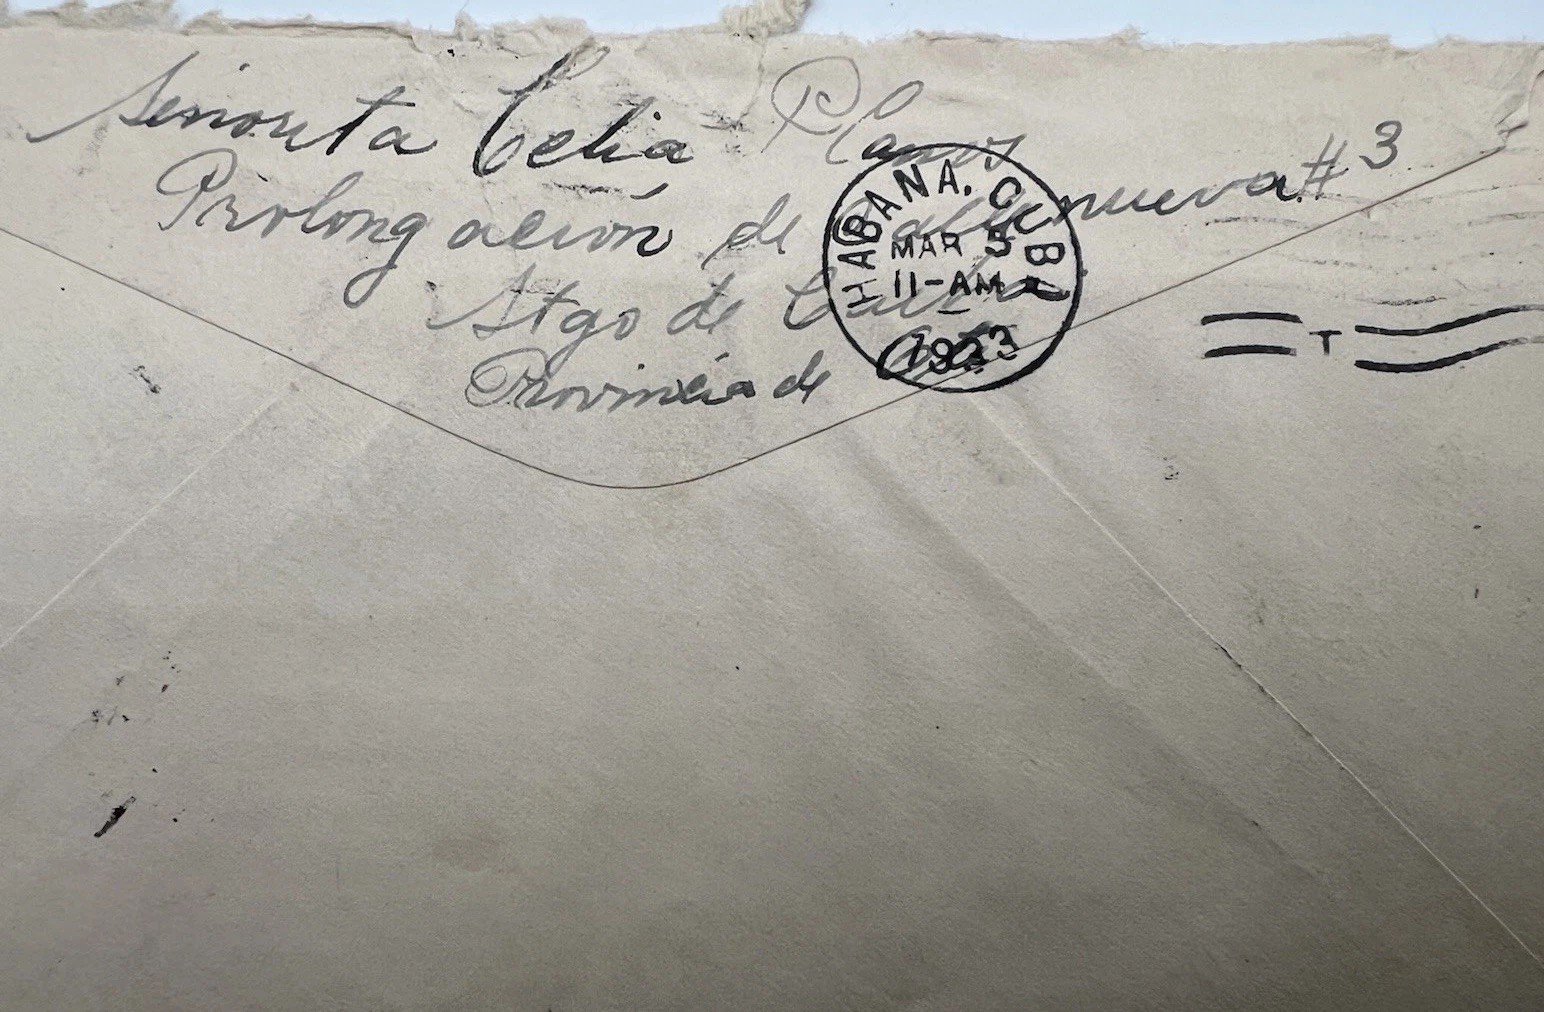 Señorita Celia Planos
Prolongación de Calle nueva #3
Stgo de Cuba
Provincia de Ote
HABANA. CUBA
MAR 3
11-AM
1933
T